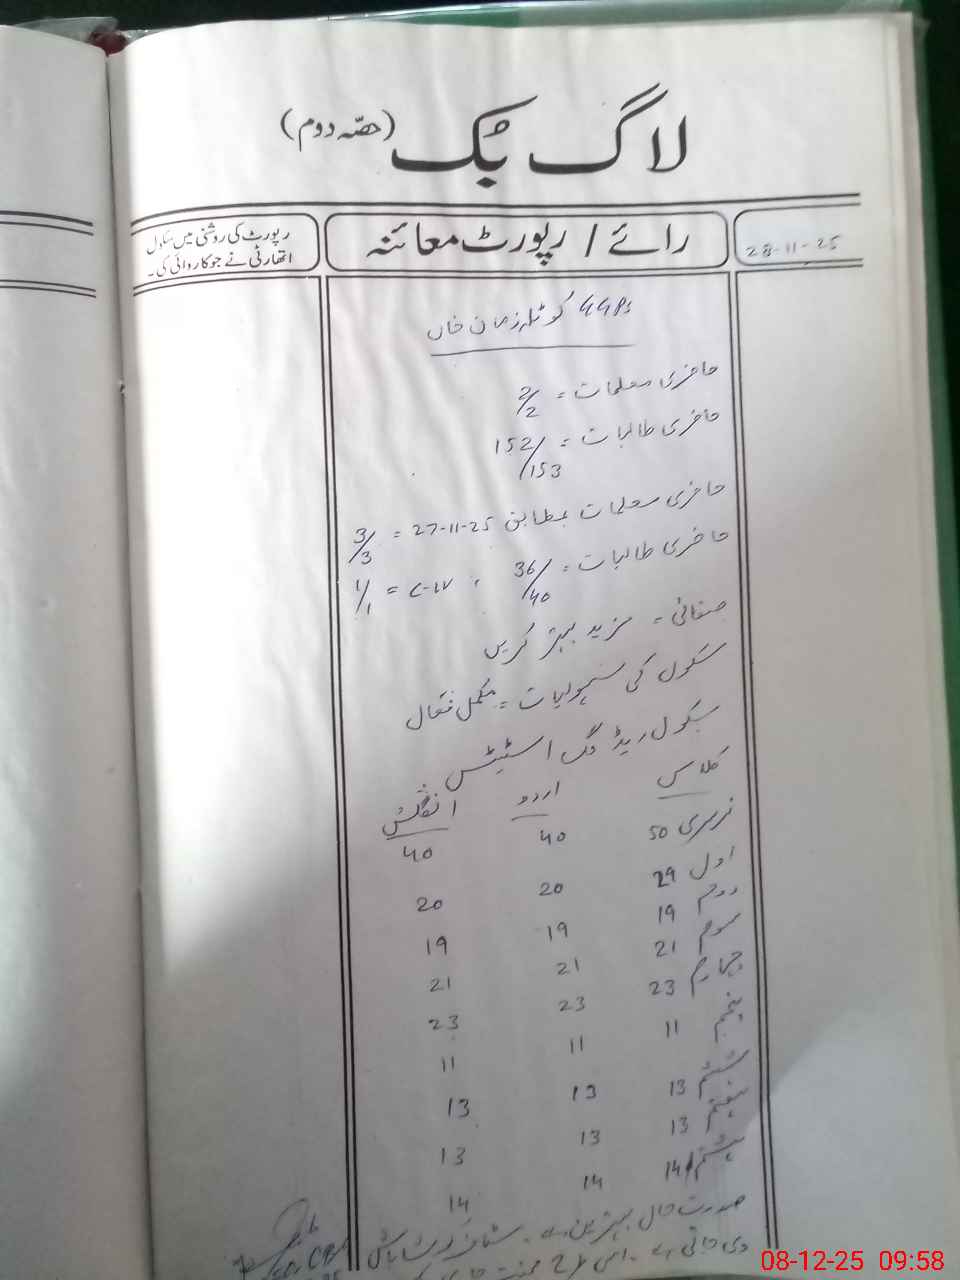 لاگ بُک (حصّہ دوم)
28-11-25
رائے / رپورٹ معائنہ
رپورٹ کی روشنی میں سکول
اتھارٹی نے جو کارروائی کی۔
GGPS کوٹلہ زمان خاں
حاضری معلمات = 2/2
حاضری طالبات = 152/153
حاضری معلمات بمطابق 27-11-25 = 3/3
حاضری طالبات = 36/40 ، C-IV = 1/1
صفائی = مزید بہتر کریں
سکول کی سہولیات = مکمل فعال
سکول ریڈنگ اسٹیٹس
کلاس اردو انگلش
نرسری 50 40 40
اول 29 20 20
دوم 19 19 19
سوم 21 21 21
چہارم 23 23 23
پنجم 11 11 11
ششم 13 13 13
ہفتم 13 13 13
ہشتم 14 14 14
صورت حال بہترین ہے۔ سٹاف کو شاباش
دی جاتی ہے۔ اسی طرح محنت
08-12-25 09:58